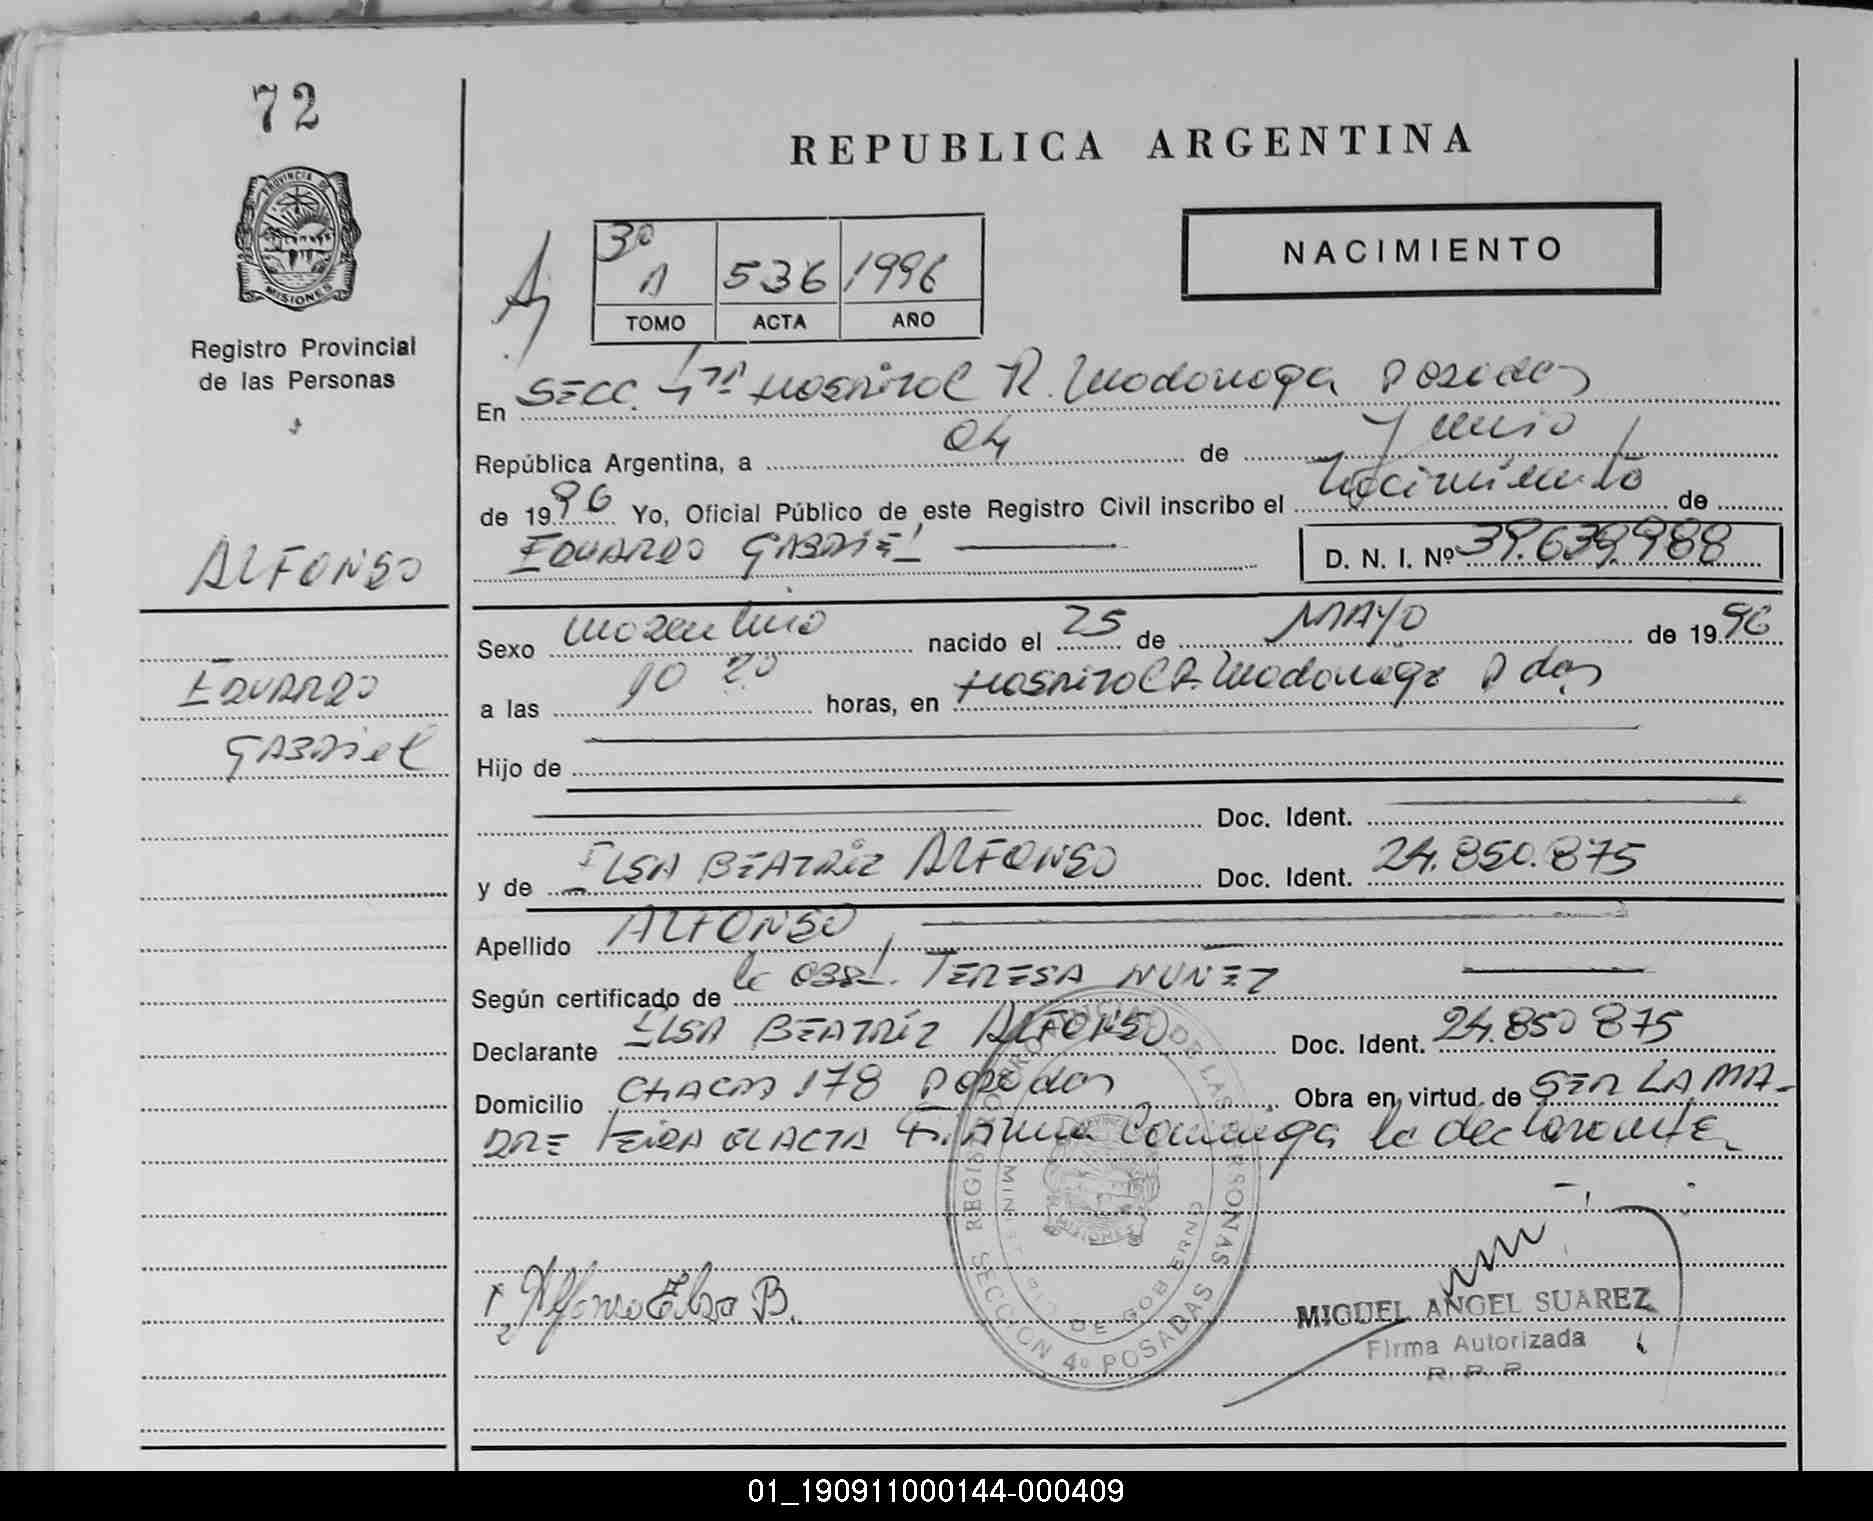 72
PROVINCIA DE
MISIONES
Registro Provincial
de las Personas
ALFONSO
EDUARDO
GABRIEL
REPUBLICA ARGENTINA
NACIMIENTO
3º
A 536 1996
TOMO ACTA AÑO
En SECC. 4ta HOSPITAL R. Madariaga Posadas
República Argentina, a 04 de Junio
de 1996 Yo, Oficial Público de este Registro Civil inscribo el Nacimiento de
EDUARDO GABRIEL D. N. I. Nº 39.639.988
Sexo masculino nacido el 25 de MAYO de 1996
a las 10 20 horas, en HOSPITAL R. Madariaga Pdas
Hijo de
Doc. Ident.
y de ELSA BEATRIZ ALFONSO Doc. Ident. 24.850.875
Apellido ALFONSO
Según certificado de la OBST. TERESA NUNEZ
Declarante ELSA BEATRIZ ALFONSO Doc. Ident. 24.850 875
Domicilio CHACRA 178 Posadas Obra en virtud de SER LA MA-
DRE LEIDA EL ACTA Firma Conmigo la declarante
REGISTRO PROVINCIAL DE LAS PERSONAS
MINISTERIO DE GOBIERNO
SECCION 4º POSADAS
Alfonso Elsa B.
MIGUEL ANGEL SUAREZ
Firma Autorizada
R. P. P.
01_190911000144-000409